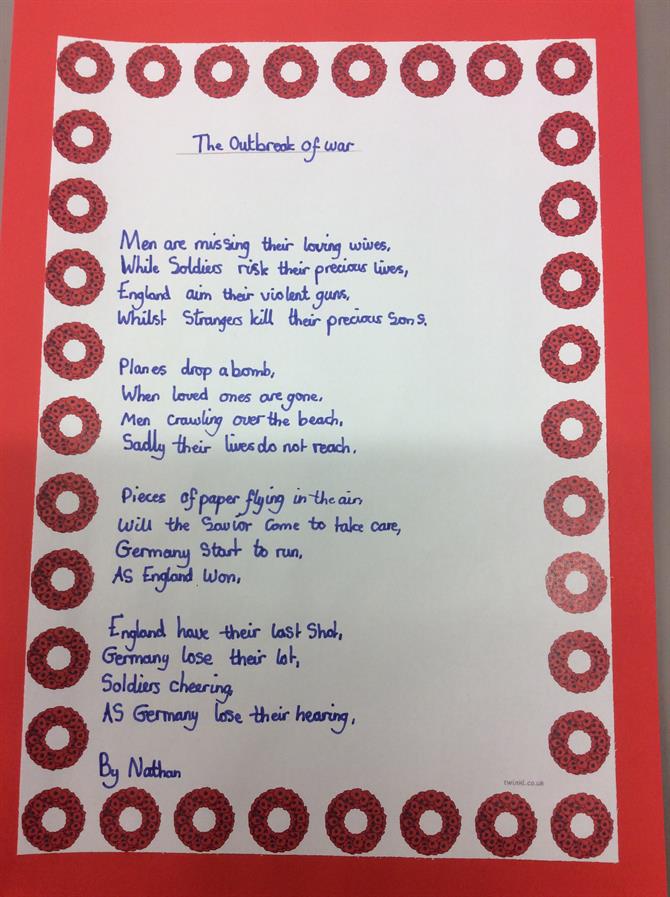 The Outbreak of war
Men are missing their loving wives,
While Soldiers risk their precious lives,
England aim their violent guns,
Whilst Strangers kill their precious Sons.
Planes drop a bomb,
When loved ones are gone,
Men crawling over the beach,
Sadly their lives do not reach.
Pieces of paper flying in the air,
Will the Savior Come to take care,
Germany Start to run,
AS England Won,
England have their last Shot,
Germany lose their lot,
Soldiers cheering,
AS Germany lose their hearing,
By Nathan
twinkl.co.uk